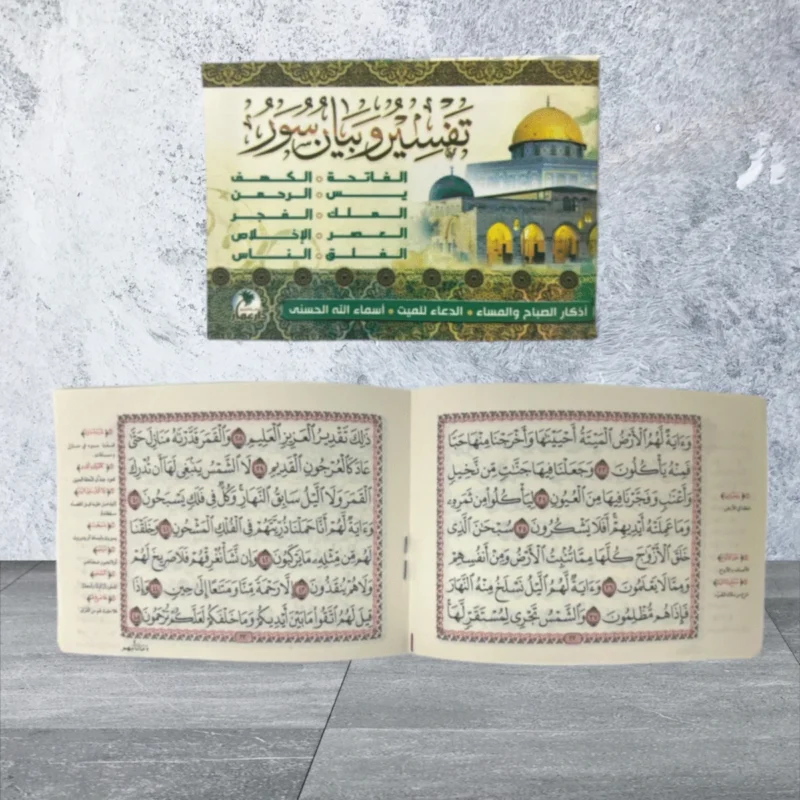 تَفْسِيرُ وَبَيَانُ سُوَرُ
الفاتحة • الكهف
يس • الرحمن
الملك • الفجر
العصر • الإخلاص
الفلق • الناس
أذكار الصباح والمساء • الدعاء للميت • أسماء الله الحسنى
وَءَايَةٌ لَّهُمُ ٱلْأَرْضُ ٱلْمَيْتَةُ أَحْيَيْنَٰهَا وَأَخْرَجْنَا مِنْهَا حَبًّا
فَمِنْهُ يَأْكُلُونَ ٣٣ وَجَعَلْنَا فِيهَا جَنَّٰتٍ مِّن نَّخِيلٍ
وَأَعْنَٰبٍ وَفَجَّرْنَا فِيهَا مِنَ ٱلْعُيُونِ ٣٤ لِيَأْكُلُوا۟ مِن ثَمَرِهِۦ
وَمَا عَمِلَتْهُ أَيْدِيهِمْ أَفَلَا يَشْكُرُونَ ٣٥ سُبْحَٰنَ ٱلَّذِى
خَلَقَ ٱلْأَزْوَٰجَ كُلَّهَا مِمَّا تُنۢبِتُ ٱلْأَرْضُ وَمِنْ أَنفُسِهِمْ
وَمِمَّا لَا يَعْلَمُونَ ٣٦ وَءَايَةٌ لَّهُمُ ٱلَّيْلُ نَسْلَخُ مِنْهُ ٱلنَّهَارَ
فَإِذَا هُم مُّظْلِمُونَ ٣٧ وَٱلشَّمْسُ تَجْرِى لِمُسْتَقَرٍّ لَّهَا
ذَٰلِكَ تَقْدِيرُ ٱلْعَزِيزِ ٱلْعَلِيمِ ٣٨ وَٱلْقَمَرَ قَدَّرْنَٰهُ مَنَازِلَ حَتَّىٰ
عَادَ كَٱلْعُرْجُونِ ٱلْقَدِيمِ ٣٩ لَا ٱلشَّمْسُ يَنۢبَغِى لَهَآ أَن تُدْرِكَ
ٱلْقَمَرَ وَلَا ٱلَّيْلُ سَابِقُ ٱلنَّهَارِ وَكُلٌّ فِى فَلَكٍ يَسْبَحُونَ ٤٠
وَءَايَةٌ لَّهُمْ أَنَّا حَمَلْنَا ذُرِّيَّتَهُمْ فِى ٱلْفُلْكِ ٱلْمَشْحُونِ ٤١ وَخَلَقْنَا
لَهُم مِّن مِّثْلِهِۦ مَا يَرْكَبُونَ ٤٢ وَإِن نَّشَأْ نُغْرِقْهُمْ فَلَا صَرِيخَ لَهُمْ
وَلَا هُمْ يُنقَذُونَ ٤٣ إِلَّا رَحْمَةً مِّنَّا وَمَتَٰعًا إِلَىٰ حِينٍ ٤٤ وَإِذَا
قِيلَ لَهُمُ ٱتَّقُوا۟ مَا بَيْنَ أَيْدِيكُمْ وَمَا خَلْفَكُمْ لَعَلَّكُمْ تُرْحَمُونَ ٤٥